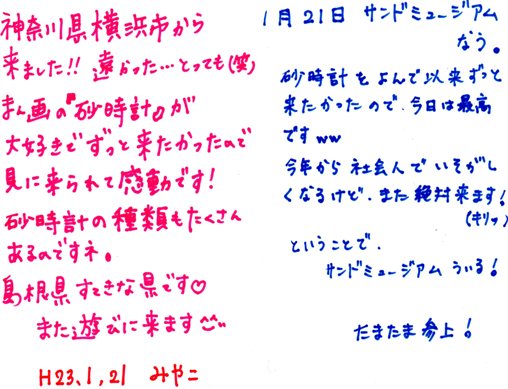 神奈川県横浜市から
来ました!! 遠かった…とっても(笑)
まん画の『砂時計』が
大好きでずっと来たかったので
見に来られて感動です!
砂時計の種類もたくさん
あるのですネ。
島根県すてきな県です♡
また遊びに来ます
H23.1.21 みやこ
1月21日 サンドミュージアム
なう。
砂時計をよんで以来ずっと
来たかったので、今日は最高
ですww
今年から社会人でいそがし
くなるけど、また絶対来ます!
(キリッ)
ということで、
サンドミュージアムうぃる!
だまたま参上!